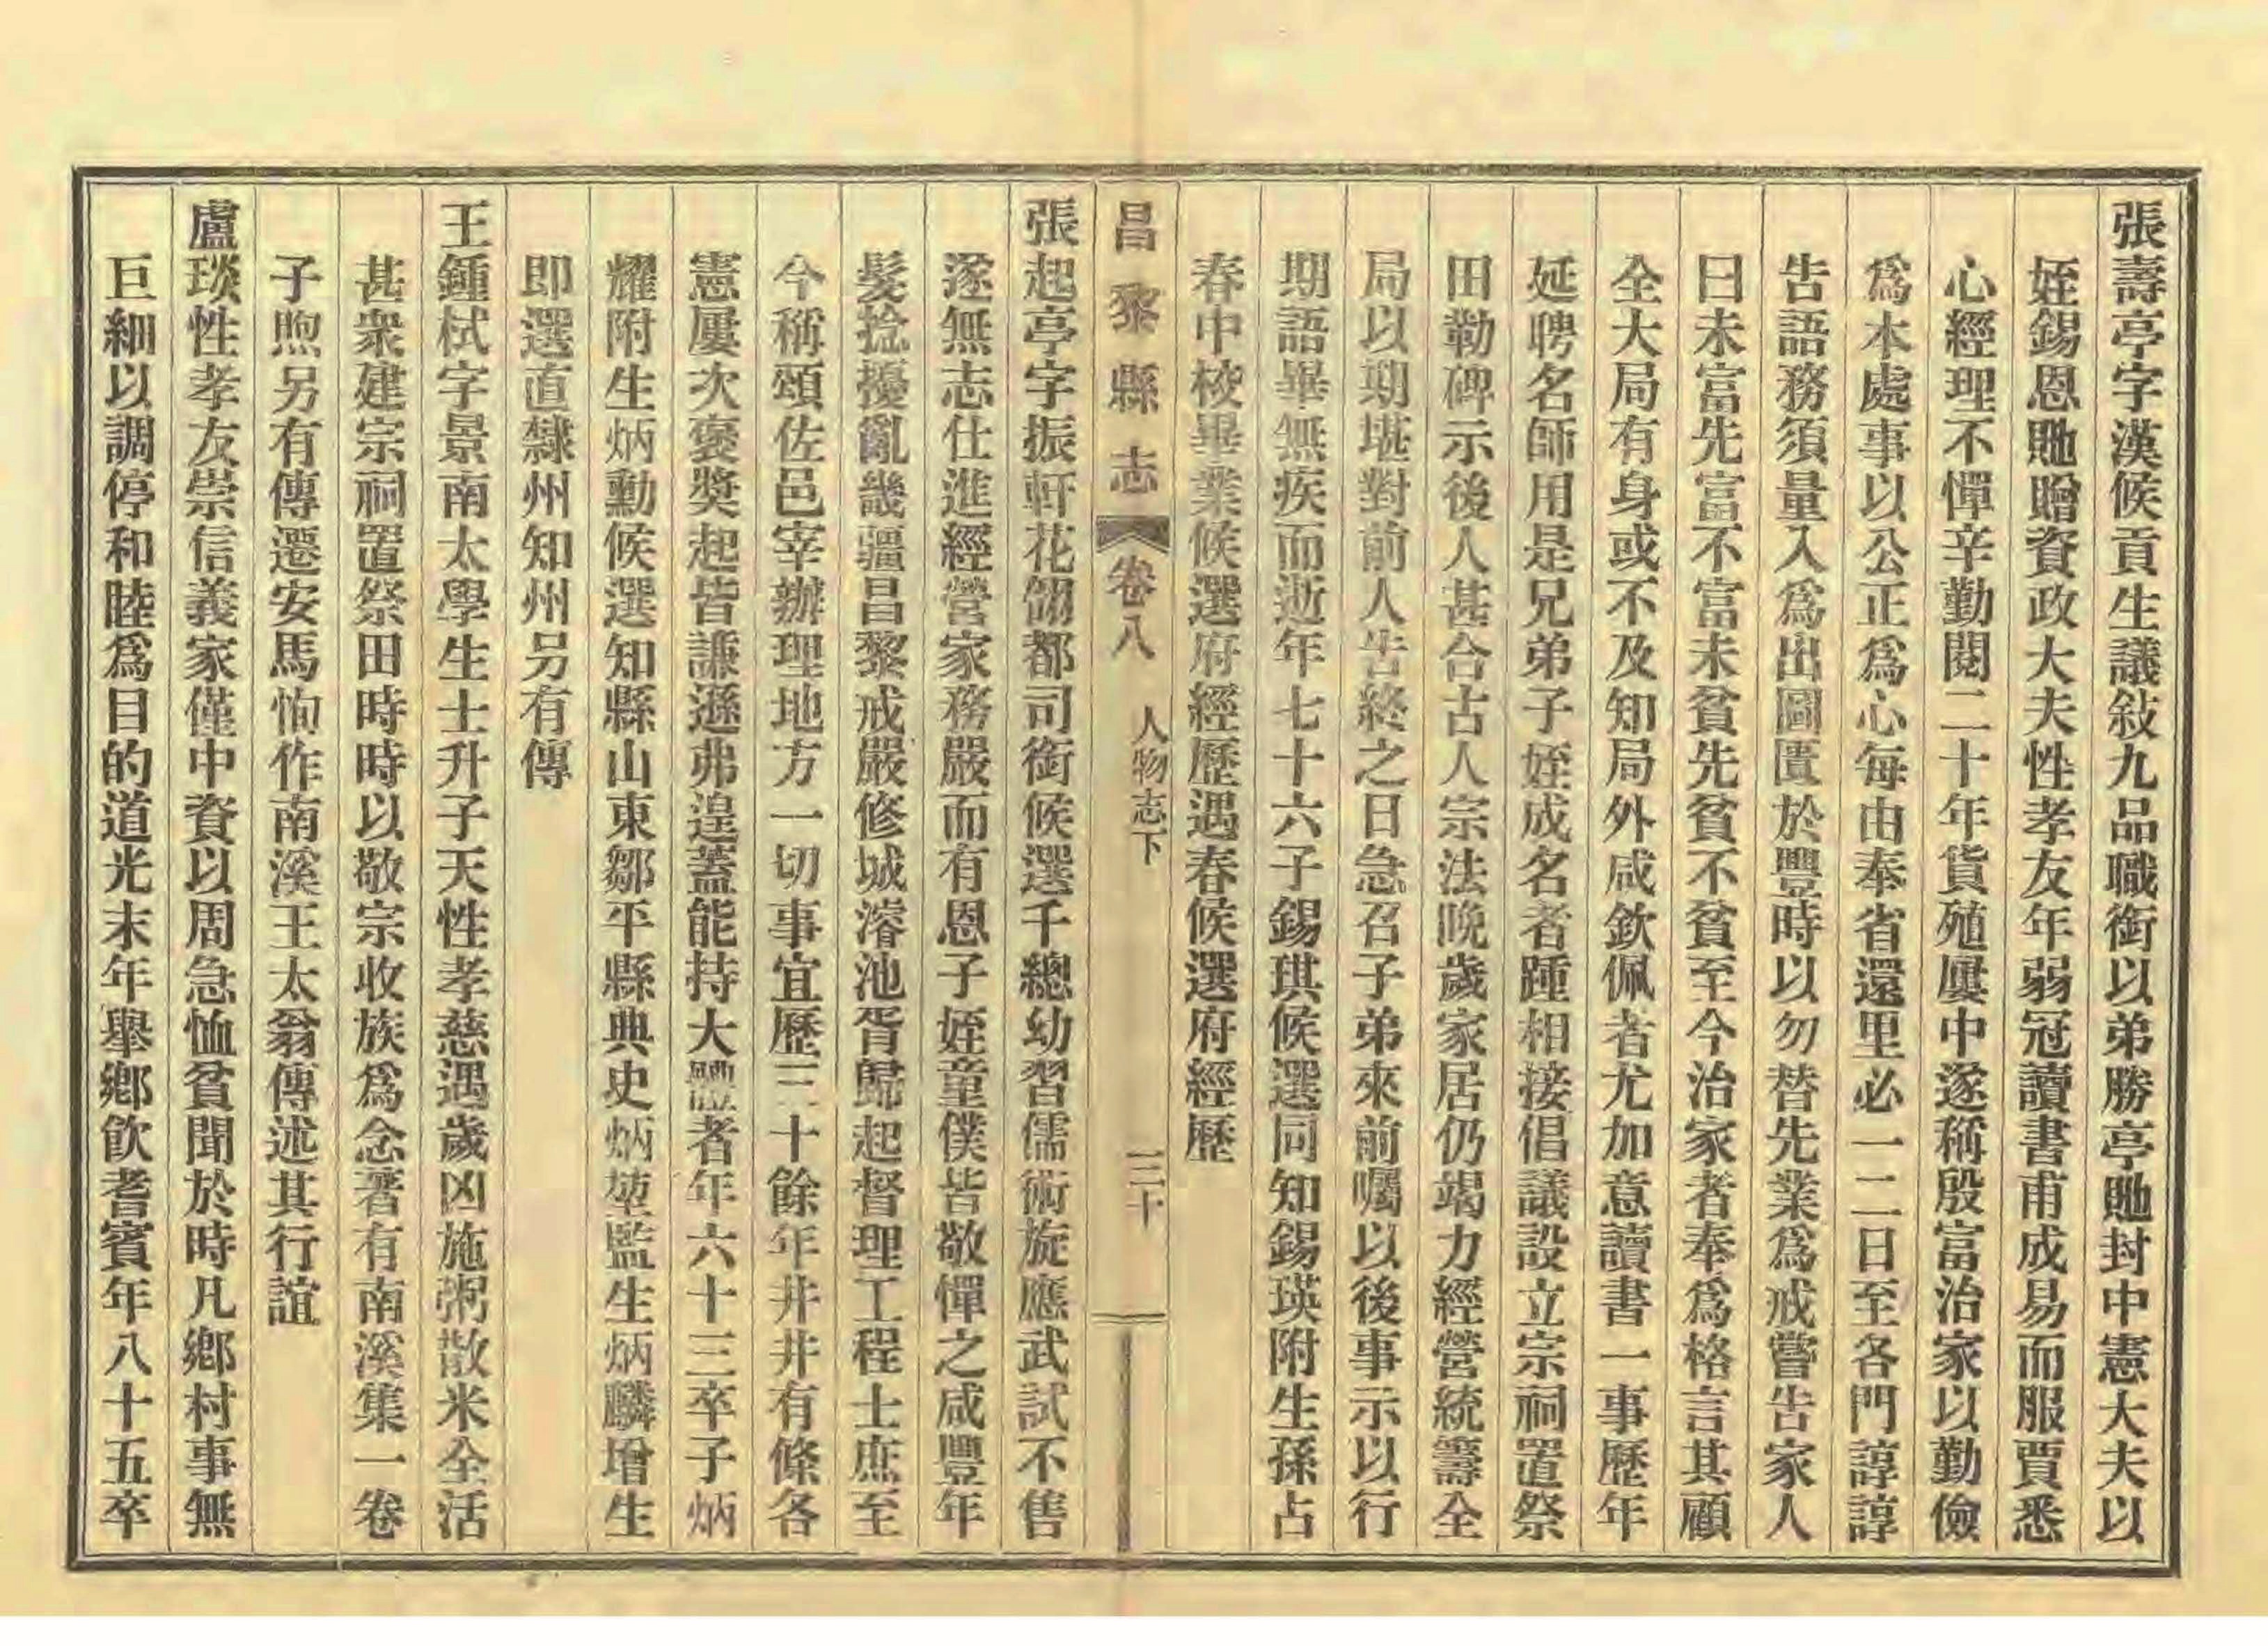 張壽亭字漢候貢生議敍九品職銜以弟勝亭貤封中憲大夫以
姪錫恩貤贈資政大夫性孝友年弱冠讀書甫成易而服賈悉
心經理不憚辛勤閱二十年貨殖屢中遂稱殷富治家以勤儉
爲本處事以公正爲心每由奉省還里必一二日至各門諄諄
告語務須量入爲出圖匱於豐時以勿替先業爲戒嘗告家人
曰未富先富不富未貧先貧不貧至今治家者奉爲格言其顧
全大局有身或不及知局外咸欽佩者尤加意讀書一事歷年
延聘名師用是兄弟子姪成名者踵相接倡議設立宗祠置祭
田勒碑示後人甚合古人宗法晚歲家居仍竭力經營統籌全
局以期堪對前人告終之日急召子弟來前囑以後事示以行
期語畢無疾而逝年七十六子錫琪候選同知錫瑛附生孫占
春中校畢業候選府經歷遇春候選府經歷
昌黎縣志 卷八 人物志下 三十
張起亭字振軒花翎都司銜候選千總幼習儒術旋應武試不售
遂無志仕進經營家務嚴而有恩子姪童僕皆敬憚之咸豐年
髮捻擾亂畿疆昌黎戒嚴修城濬池胥歸起督理工程士庶至
今稱頌佐邑宰辦理地方一切事宜歷三十餘年井井有條各
憲屢次褒獎起皆謙遜弗遑蓋能持大體者年六十三卒子炳
耀附生炳勳候選知縣山東鄒平縣典史炳堃監生炳麟增生
即選直隸州知州另有傳
王鍾栻字景南太學生士升子天性孝慈遇歲凶施粥散米全活
甚衆建宗祠置祭田時時以敬宗收族爲念著有南溪集一卷
子煦另有傳遷安馬恂作南溪王太翁傳述其行誼
盧琰性孝友崇信義家僅中資以周急恤貧聞於時凡鄉村事無
巨細以調停和睦爲目的道光末年舉鄉飮耆賓年八十五卒